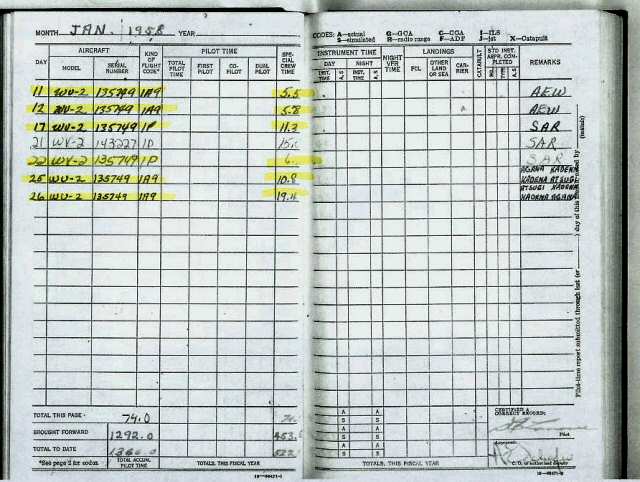 MONTH JAN. 1958 YEAR
CODES: A—actual G—GCA C—CCA I—ILS
S—simulated R—radio range F—ADF J—Jet X—Catapult
DAY AIRCRAFT KIND OF FLIGHT CODE* TOTAL PILOT TIME PILOT TIME SPECIAL CREW TIME
MODEL SERIAL NUMBER FIRST PILOT CO-PILOT DUAL PILOT
INSTRUMENT TIME NIGHT VFR TIME LANDINGS CATAPULT STD INST. APPR. COMPLETED REMARKS
DAY NIGHT FCL OTHER LAND OR SEA CARRIER NO. TYPE A,S
INST. TIME A,S INST. TIME A,S
11 WV-2 135749 1A9 5.5 AEW
12 WV-2 135749 1A9 5.8 AEW
17 WV-2 135749 1P 11.3 SAR
21 WV-2 143227 1P SAR
22 WV-2 135749 1P SAR
25 WV-2 135749 1A9 10.8 AGANA KADENA
KADENA ATSUGI
26 WV-2 135749 1A9 ATSUGI KADENA
KADENA AGANA
TOTAL THIS PAGE - 74.0
BROUGHT FORWARD 1292.0 453.
TOTAL TO DATE 1366.0
*See page 2 for codes. TOTAL ACCUM. PILOT TIME TOTALS, THIS FISCAL YEAR
A A
S S
A A
S S
A A
S S
TOTALS, THIS FISCAL YEAR
CERTIFIED A CORRECT RECORD:
Pilot.
Approved:
C. O. or authorized deputy